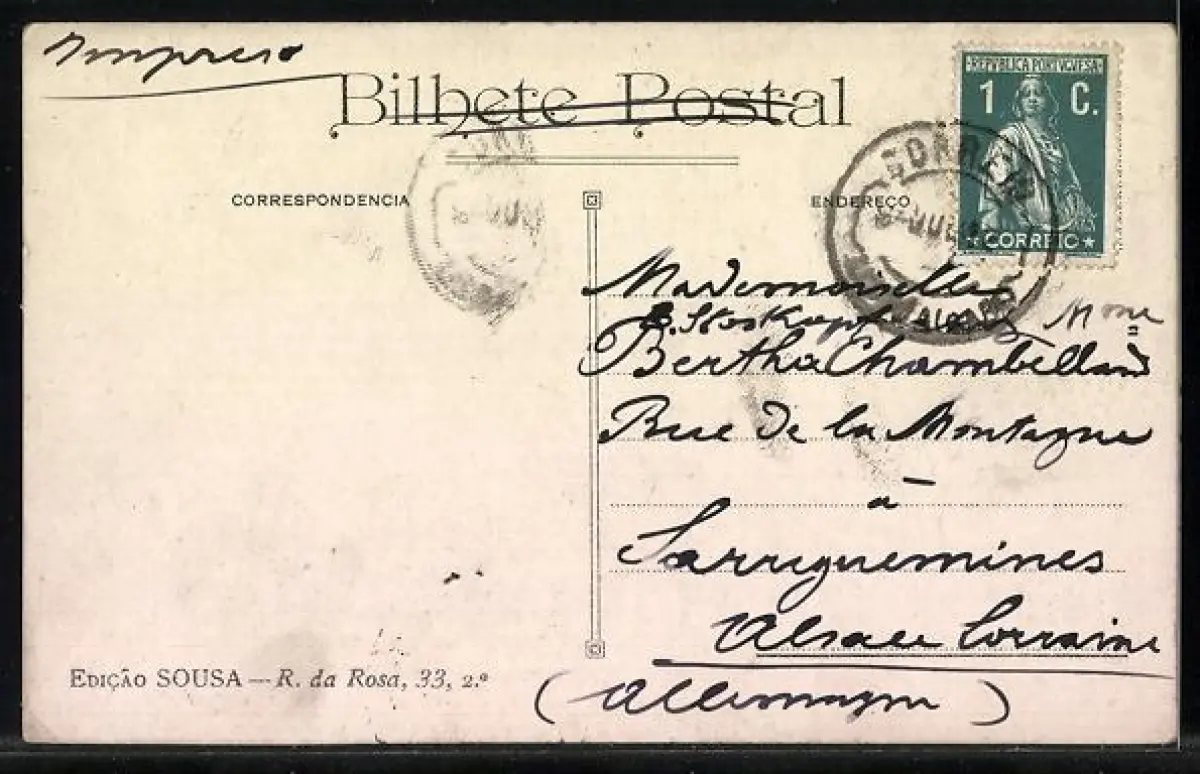 Impreso
Bilhete Postal
REPVBLICA PORTVGVESA
1 C.
CORREIO
CORREIO
CORRESPONDENCIA
ENDEREÇO
Mademoiselle
Mme
Bertha Chambelland
Rue de la Montagne
à
Sarreguemines
Alsace Lorraine
(Allemagne)
EDIÇÃO SOUSA — R. da Rosa, 33, 2.º